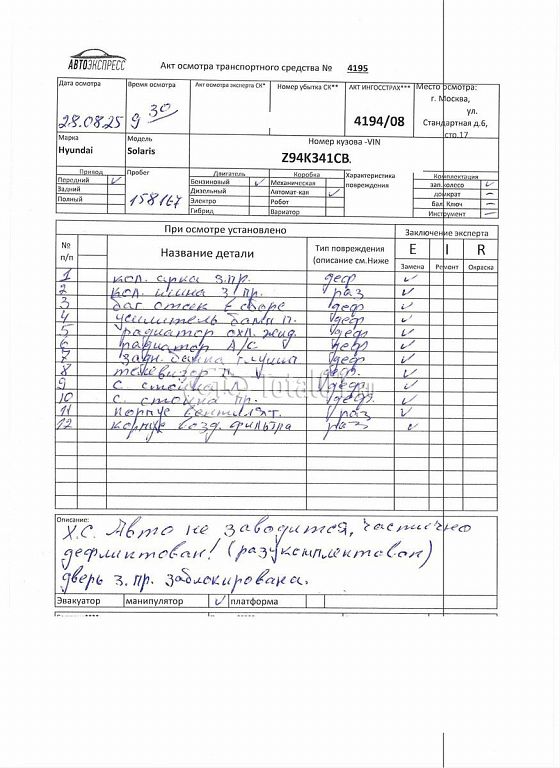 АВТОЭКСПРЕСС
Акт осмотра транспортного средства № 4195
Дата осмотра Время осмотра Акт осмотра эксперта СК* Номер убытка СК** АКТ ИНГОССТРАХ*** Место осмотра:
28.08.25 9 30 4194/08 г. Москва,
ул.
Стандартная д.6,
стр.17
Марка Модель Номер кузова -VIN
Hyundai Solaris Z94K341CB.
Привод Пробег Двигатель Коробка Характеристика повреждения Комплектация
Передний ✓ 158167 Бензиновый ✓ Механическая зап.колесо ✓
Задний Дизельный Автомат-кая ✓ домкрат –
Полный Электро Робот бал. Ключ –
Гибрид Вариатор Инструмент –
При осмотре установлено Заключение эксперта
№ п/п Название детали Тип повреждения (описание см.Ниже E I R
Замена Ремонт Окраска
1 кол. арка з.пр. деф ✓
2 кол. шина з пр. раз ✓
3 баг отсек в сборе деф ✓
4 усилитель бампп. деф ✓
5 радиатор охл. жид. деф ✓
6 радиатор А/С деф ✓
7 задн. банка глушит деф ✓
8 телевизор деф. ✓
9 с. стойка деф ✓
10 с. стойка пр. деф. ✓
11 корпус вентилят. раз ✓
12 корпус возд. фильтра раз ✓
Описание:
Х.С. Авто не заводится, частично
дефлинтован! (разукомплектован)
дверь з. пр. заблокирована.
Эвакуатор манипулятор ✓ платформа